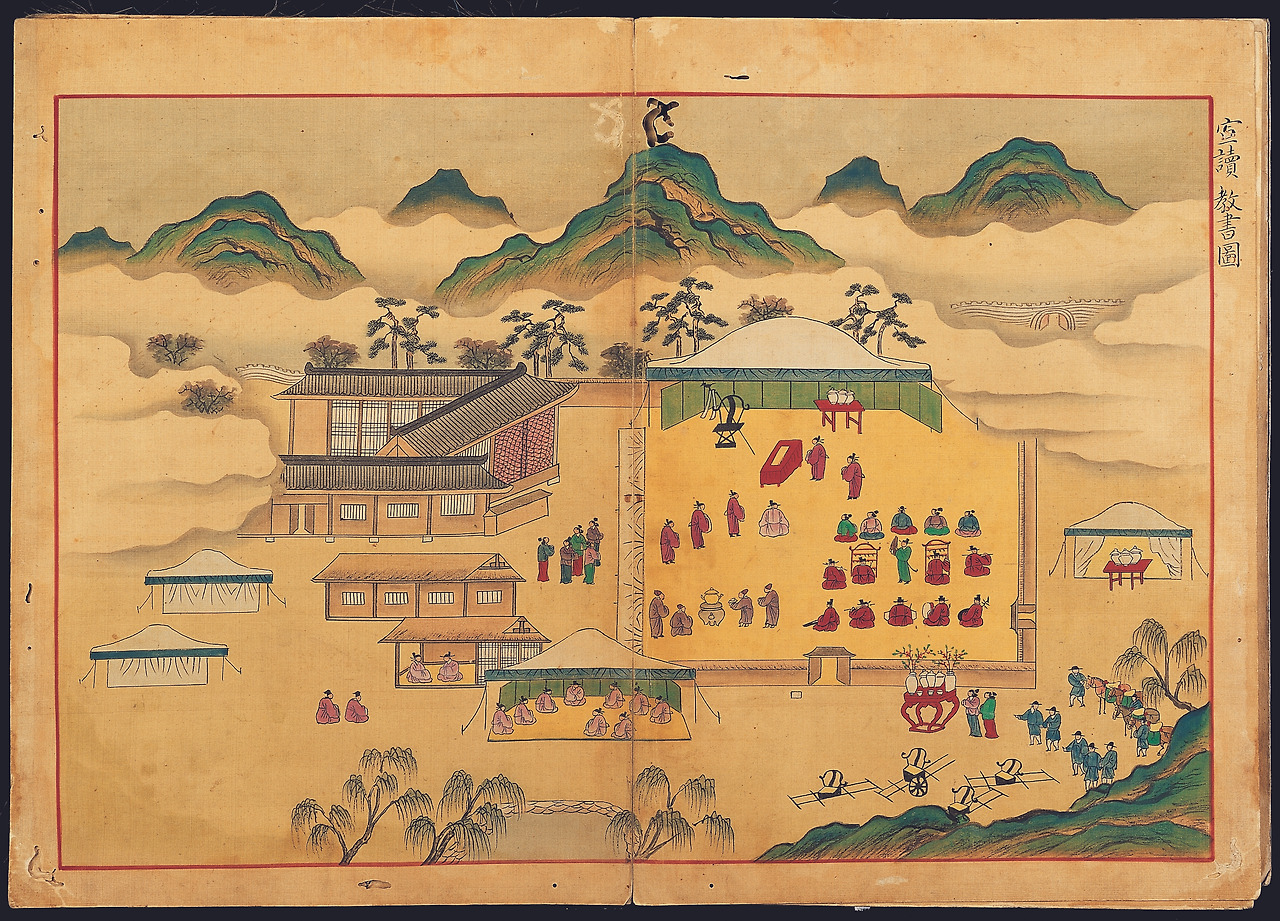 宣讀教書圖